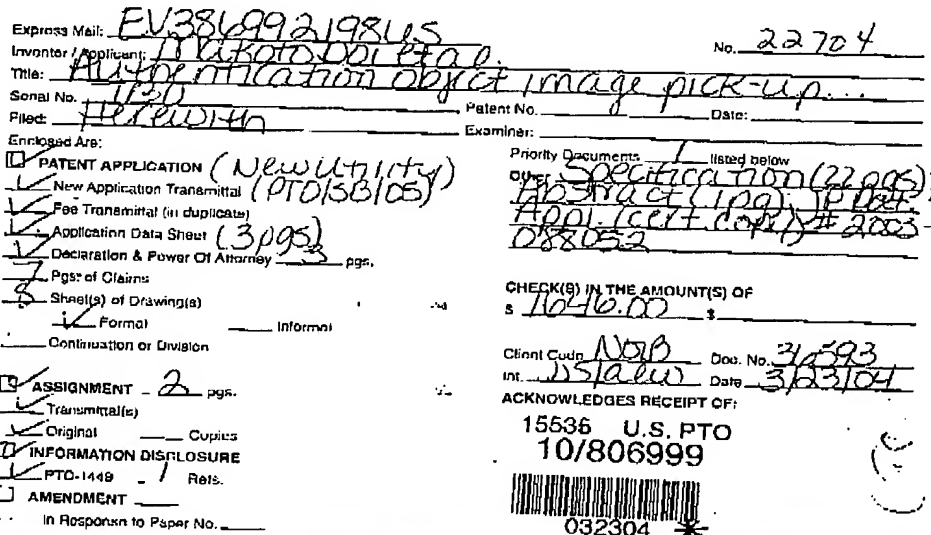 Express Mail: EV386992198US
No. 22704
Inventor / Applicant: Makoto Doi et al.
Title: Authentication object image pick-up...
Serial No. Patent No. Date:
Filed: Herewith Examiner:
Enclosed Are:
PATENT APPLICATION (New Utility)
New Application Transmittal (PTO/SB/05)
Fee Transmittal (in duplicate)
Application Data Sheet (3pgs)
Declaration & Power Of Attorney 3 pgs.
7 Pgs. of Claims
8 Sheet(s) of Drawing(s)
Formal Informal
Continuation or Division
ASSIGNMENT - 2 pgs.
Transmittal(s)
Original Copies
INFORMATION DISCLOSURE
PTO-1449 - 1 Refs.
AMENDMENT
In Response to Paper No.
Priority Documents 1 listed below
Other Specification (22 pgs);
Abstract (1pg), JP Pat.
Appl. (cert. copy) # 2003-
088052
CHECK(S) IN THE AMOUNT(S) OF
$ 1646.00 $
Client Code Doc. No. 31,593
Int. Date 3/23/04
ACKNOWLEDGES RECEIPT OF:
15536 U.S. PTO
10/806999
032304